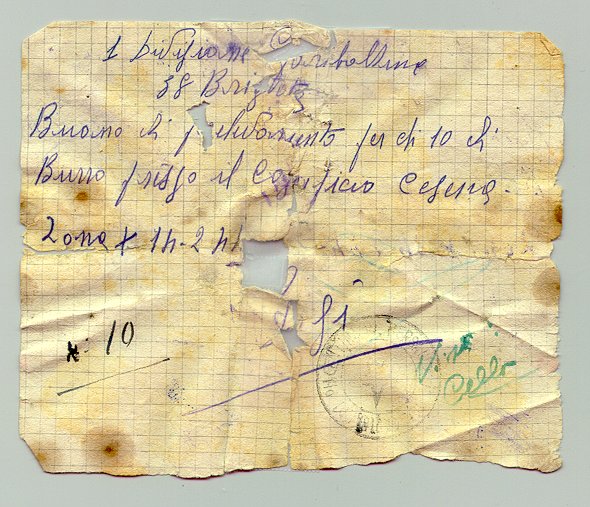 1 Divisione Garibaldina
38 Brigata
Buono di prelevamento per di 10 di
Burro presso il Caseificio Cesena.
Zona X 14-2 41
N. 10
Visto
Cello